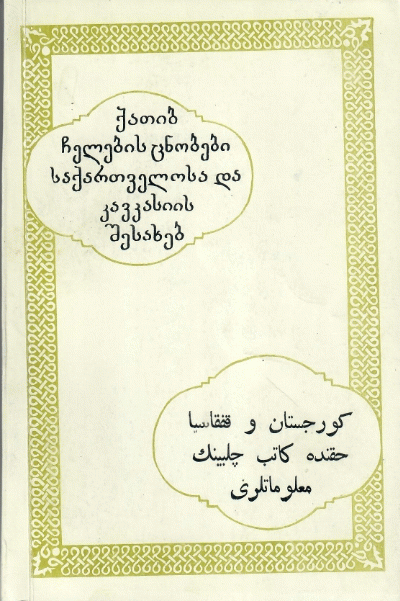 ქათიბ
ჩელების ცნობები
საქართველოსა და
კავკასიის
შესახებ
كورجستان و قفقاسيا
حقنده كاتب چلبينك
معلوماتلرى